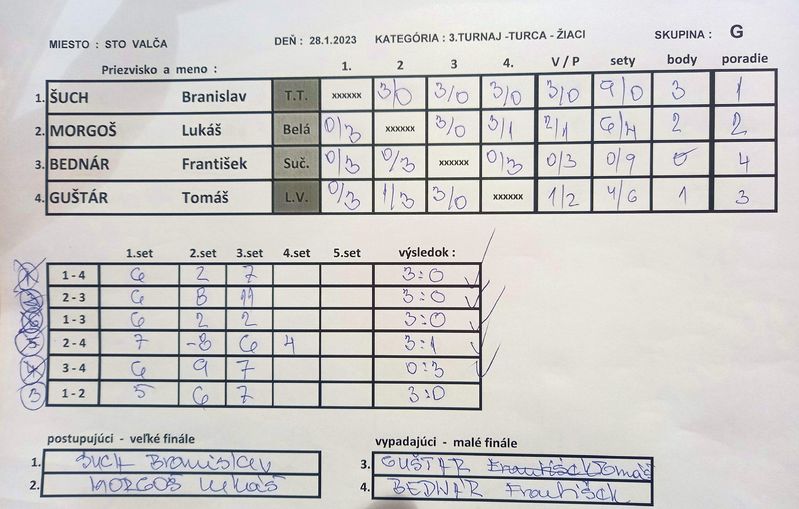 MIESTO : STO VALČA DEŇ : 28.1.2023 KATEGÓRIA : 3.TURNAJ -TURCA - ŽIACI SKUPINA : G
Priezvisko a meno : 1. 2 3 4. V / P sety body poradie
1. ŠUCH Branislav T.T. xxxxxx 3/0 3/0 3/0 3/0 9/0 3 1
2. MORGOŠ Lukáš Belá 0/3 xxxxxx 3/0 3/1 2/1 6/4 2 2
3. BEDNÁR František Suč. 0/3 0/3 xxxxxx 0/3 0/3 0/9 0 4
4. GUŠTÁR Tomáš L.V. 0/3 1/3 3/0 xxxxxx 1/2 4/6 1 3
1.set 2.set 3.set 4.set 5.set výsledok :
1 - 4 6 2 7 3:0
2 - 3 6 8 11 3:0
1 - 3 6 2 2 3:0
2 - 4 7 -8 6 4 3:1
3 - 4 6 9 7 0:3
3 1 - 2 5 6 7 3:0
postupujúci - veľké finále
1. ŠUCH Branislav
2. MORGOŠ Lukáš
vypadajúci - malé finále
3. GUŠTÁR František Tomáš
4. BEDNÁR František